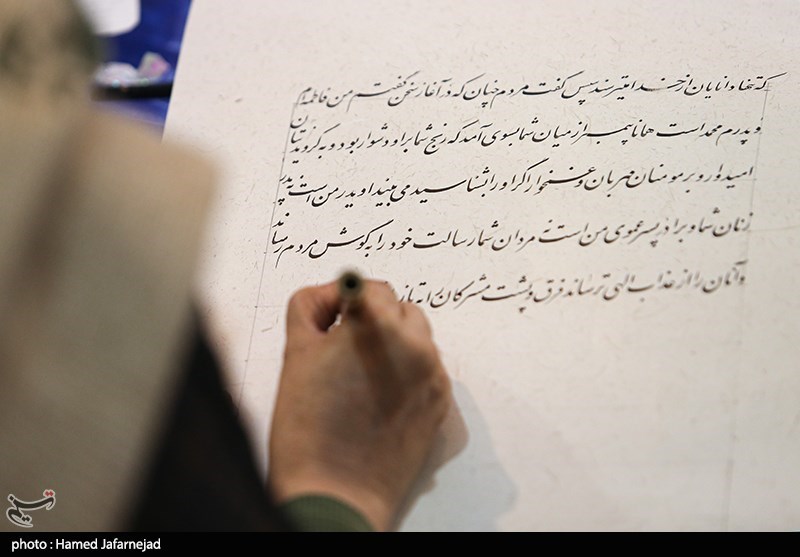 که تنها دانایان از خدا می‌ترسند سپس گفت مردم چنان که در آغاز سخن گفتم من فاطمه‌ام
و پدرم محمد است همانا پیمبری از میان شما بسوی آمد که رنج شما بر او دشوار بود و به گرویدنتان
امیدوار و بر مومنان مهربان و غمخوار اگر او را بشناسید می‌بینید او پدر من است نه پدر
زنان شما و برادر پسر عموی من است نه مردان شما رسالت خود را به گوش مردم رساند
و آنان را از عذاب الهی ترساند فرق و پشت مشرکان را به تازیانه
تسنیم
photo : Hamed Jafarnejad